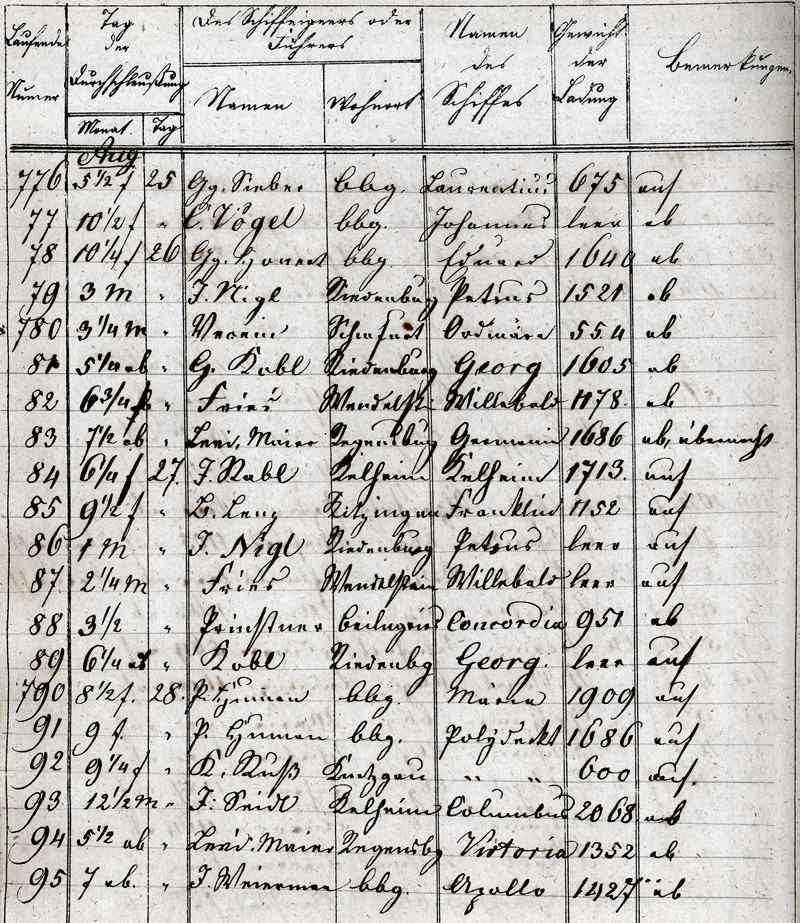 Laufende Numer
Tag der Durchschleußung
Des Schiffeigners oder Führers
Namen des Schiffes
Gewicht der Ladung
Bemerkungen.
Monat. Tag
Namen Wohnort
Aug
776 5 1/2 f 25 Gg. Sieber bbg. Laurentius 675 auf
77 10 1/2 f " C. Vögel bbg. Johannes leer ab
78 10 1/4 f 26 Gg. bbg Eduard 1640 ab
79 3 M " J. Nigl Riedenburg Petrus 1521 ab
780 3 1/4 M " Verein Ordinäre 554 ab
81 5 1/4 ab " G. Kobl Riedenburg Georg 1605 ab
82 6 3/4 " Fries Wendelst. Willebald 1178 ab
83 7 1/2 ab " Maier Regensburg Germania 1686 ab, übernacht
84 6 1/4 f 27. J. Rabl Kelheim Kelheim 1713. auf
85 9 1/2 f " B. Lenz Kitzingen Franklin 1152 auf
86 1 M " J. Nigl Riedenburg Petrus leer auf
87 2 1/4 M " Fries Wendelstein Willebald leer auf
88 3 1/2 " Prinstner beilngries Concordia 951 ab
89 6 1/4 ab " Kobl Riedenbg Georg. leer auf
790 8 1/2 f. 28. P. bbg. Maria 1909 auf
91 9 f. " P. bbg. Polydeckt 1686 auf
92 9 1/4 f " K. Ruß " " 600 auf
93 12 1/2 M " J. Seidl Kelheim Columbus 2068 ab
94 5 1/2 ab " Maier Regensbg Victoria 1352 ab
95 7 ab. " J. Weierman bbg. Apollo 1427 ab